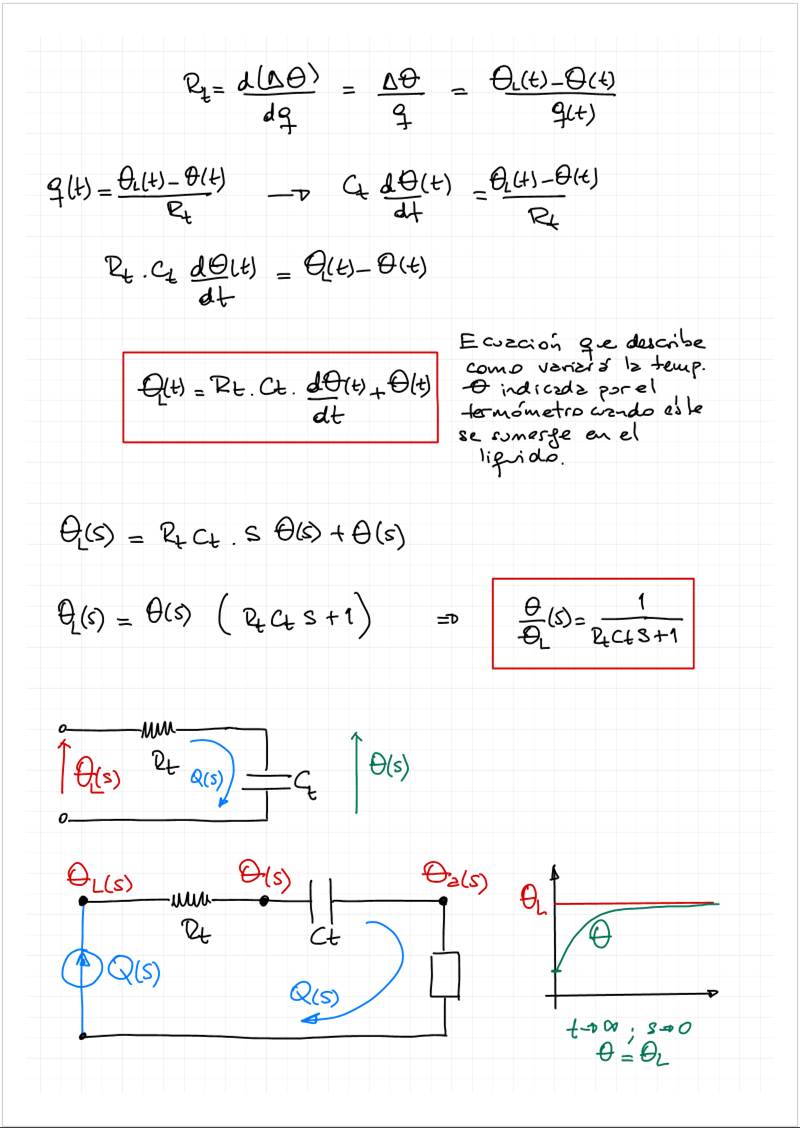 R_t = d(Δθ)/dq = Δθ/q = (θ_L(t) - θ(t))/q(t)
q(t) = (θ_L(t) - θ(t))/R_t → C_t dθ(t)/dt = (θ_L(t) - θ(t))/R_t
R_t . C_t dθ(t)/dt = θ_L(t) - θ(t)
θ_L(t) = R_t . C_t . dθ(t)/dt + θ(t)
Ecuación que describe
como variará la temp.
θ indicada por el
termómetro cuando este
se sumerge en el
líquido.
θ_L(s) = R_t C_t . s θ(s) + θ(s)
θ_L(s) = θ(s) (R_t C_t s + 1) ⇒ θ/θ_L (s) = 1/(R_t C_t s + 1)
θ_L(s) R_t Q(s) C_t θ(s)
θ_L(s) θ(s) θ_a(s)
R_t C_t
Q(s) Q(s)
θ_L
θ
t→∞ ; s→0
θ = θ_L